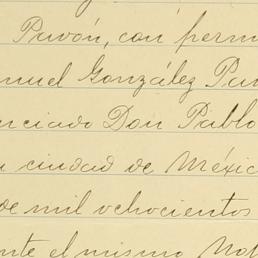 Pavón, con perm
nuel González Pa
nciado Don Pablo
ciudad de Méxic
de mil ochocientos
nte el mismo Not